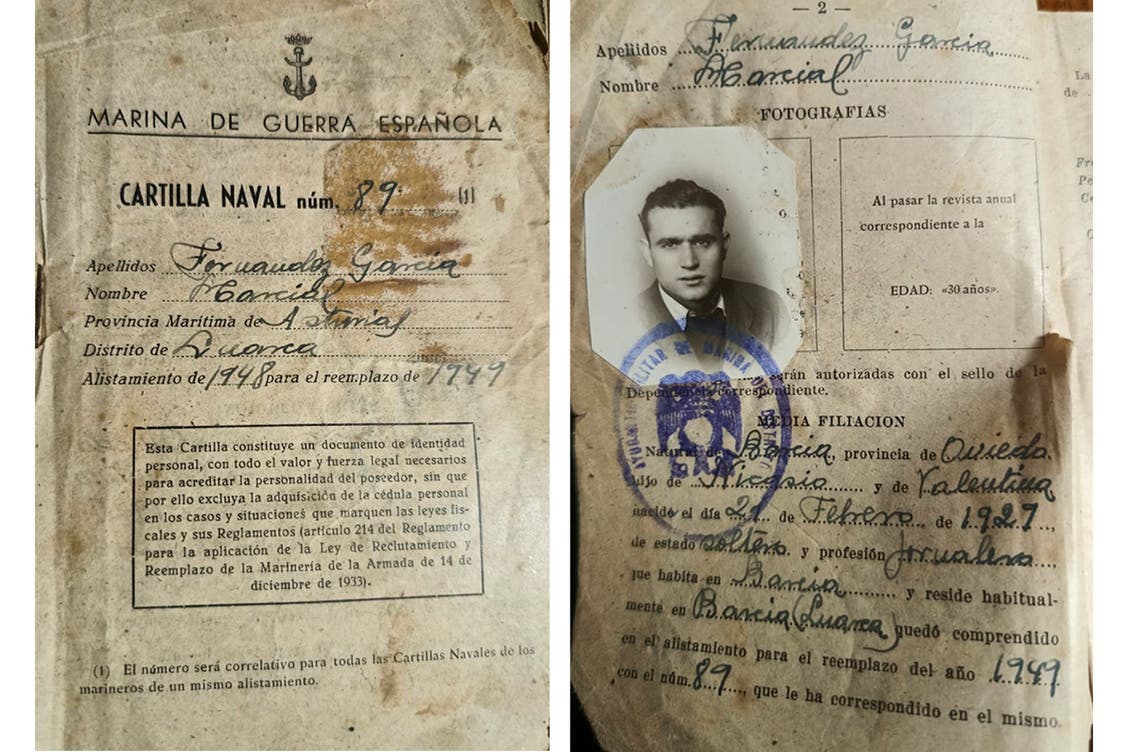 MARINA DE GUERRA ESPAÑOLA
CARTILLA NAVAL núm. 89 (1)
Apellidos Fernandez Garcia
Nombre Marcial
Provincia Marítima de Asturias
Distrito de Luarca
Alistamiento de 1948 para el reemplazo de 1949
Esta Cartilla constituye un documento de identidad
personal, con todo el valor y fuerza legal necesarios
para acreditar la personalidad del poseedor, sin que
por ello excluya la adquisición de la cédula personal
en los casos y situaciones que marquen las leyes fis-
cales y sus Reglamentos (artículo 214 del Reglamento
para la aplicación de la Ley de Reclutamiento y
Reemplazo de la Marinería de la Armada de 14 de
diciembre de 1933).
(1) El número será correlativo para todas las Cartillas Navales de los
marineros de un mismo alistamiento.
— 2 —
Apellidos Fernandez Garcia
Nombre Marcial
FOTOGRAFIAS
Al pasar la revista anual
correspondiente a la
EDAD: «30 años».
serán autorizadas con el sello de la
Dependencia correspondiente.
MILITAR DE MARINA
MEDIA FILIACION
Natural de Barcia, provincia de Oviedo,
hijo de Nicasio y de Valentina
nacido el día 21 de Febrero de 1927,
de estado soltero. y profesión Jornalero
que habita en Barcia y reside habitual-
mente en Barcia (Luarca) quedó comprendido
en el alistamiento para el reemplazo del año 1949
con el núm. 89, que le ha correspondido en el mismo.
La
de
Fr
Pe
Ce